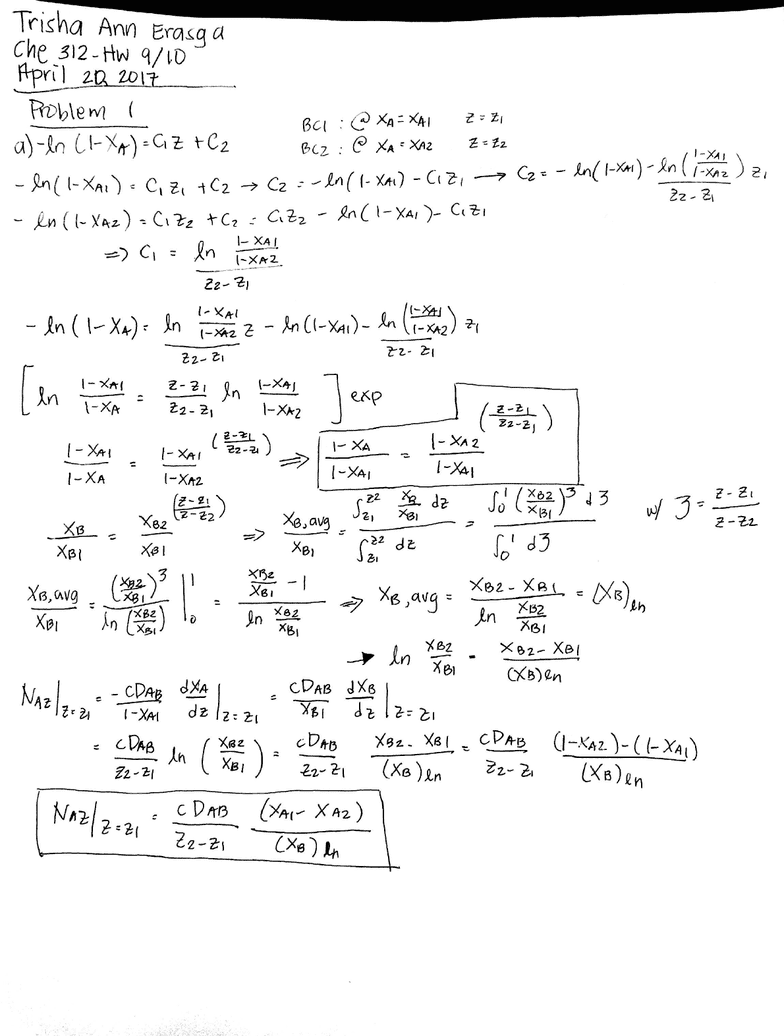 Trisha Ann Erasga
Che 312-HW 9/10
April 20, 2017
Problem 1
BC1 : @ XA = XA1 z = z1
a) -ln (1-XA) = C1z + C2
BC2 : @ XA = XA2 z = z2
- ln(1-XA1) = C1z1 + C2 → C2 = -ln(1-XA1) - C1z1 → C2 = - ln(1-XA1) - ln((1-XA1)/(1-XA2))/(z2-z1) z1
- ln(1-XA2) = C1z2 + C2 = C1z2 - ln(1-XA1) - C1z1
⇒ C1 = ln (1-XA1)/(1-XA2) / (z2-z1)
- ln(1-XA) = ln (1-XA1)/(1-XA2) / (z2-z1) z - ln(1-XA1) - ln((1-XA1)/(1-XA2))/(z2-z1) z1
[ ln (1-XA1)/(1-XA) = (z-z1)/(z2-z1) ln (1-XA1)/(1-XA2) ] exp
(1-XA1)/(1-XA) = (1-XA1)/(1-XA2)^((z-z1)/(z2-z1)) ⇒ (1-XA)/(1-XA1) = (1-XA2)/(1-XA1)^((z-z1)/(z2-z1))
XB/XB1 = XB2/XB1^((z-z1)/(z-z2)) ⇒ XB,avg/XB1 = ∫z1^z2 XB/XB1 dz / ∫z1^z2 dz = ∫0^1 (XB2/XB1)^3 d3 / ∫0^1 d3 w/ 3 = (z-z1)/(z-z2)
XB,avg/XB1 = (XB2/XB1)^3 / ln(XB2/XB1) |0^1 = (XB2/XB1 - 1) / ln XB2/XB1 ⇒ XB,avg = (XB2-XB1) / ln XB2/XB1 = (XB)ln
→ ln XB2/XB1 = (XB2-XB1)/(XB)ln
NAz|z=z1 = -CDAB/(1-XA1) dXA/dz |z=z1 = CDAB/XB1 dXB/dz |z=z1
= CDAB/(z2-z1) ln (XB2/XB1) = CDAB/(z2-z1) (XB2-XB1)/(XB)ln = CDAB/(z2-z1) ((1-XA2)-(1-XA1))/(XB)ln
NAz|z=z1 = CDAB/(z2-z1) (XA1-XA2)/(XB)ln